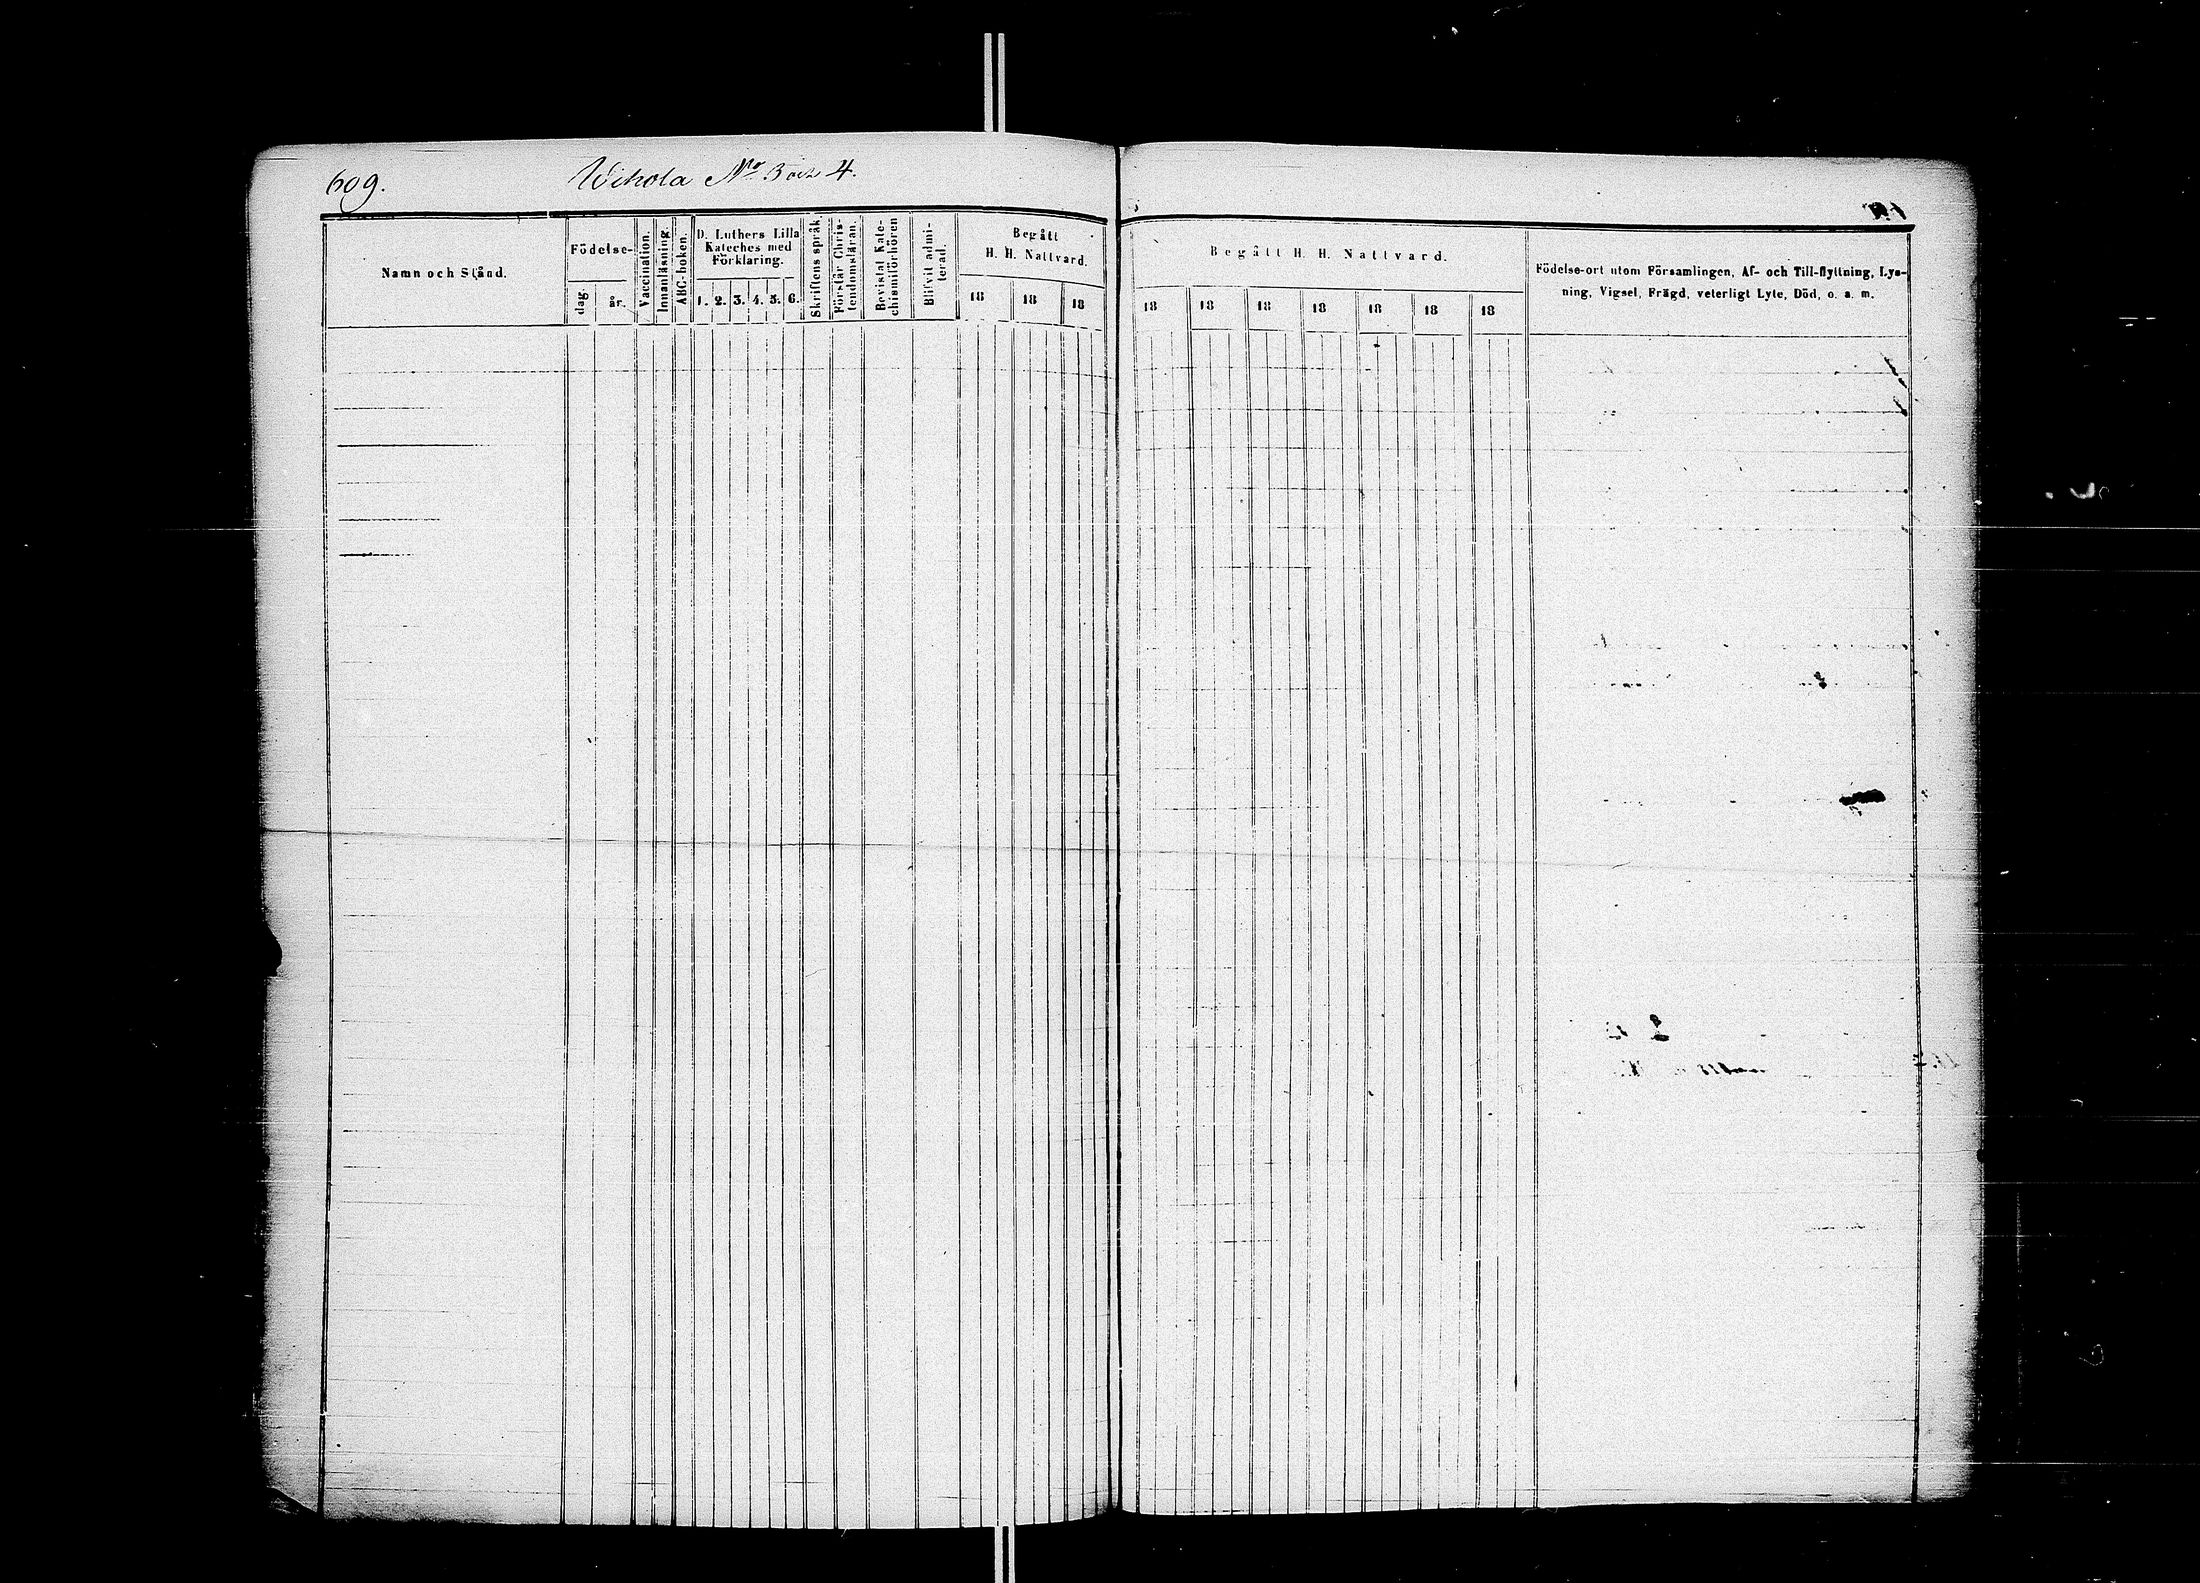 609.
Wihola No 3 och 4.
Namn och Stånd.
Födelse-
dag.
år.
Vaccination.
Innanläsning.
ABC-boken.
D. Luthers Lilla
Kateches med
Förklaring.
1. 2. 3. 4. 5. 6.
Skriftens språk.
Förstår Chris-
tendomsläran.
Bevistat Kate-
chismiförhören
Blifvit admi-
terad.
Begått
H. H. Nattvard.
18 18 18
Begått H. H. Nattvard.
18 18 18 18 18 18 18
Födelse-ort utom Församlingen, Af- och Till-flyttning, Lys-
ning, Vigsel, Frägd, veterligt Lyte, Död, o. s. m.